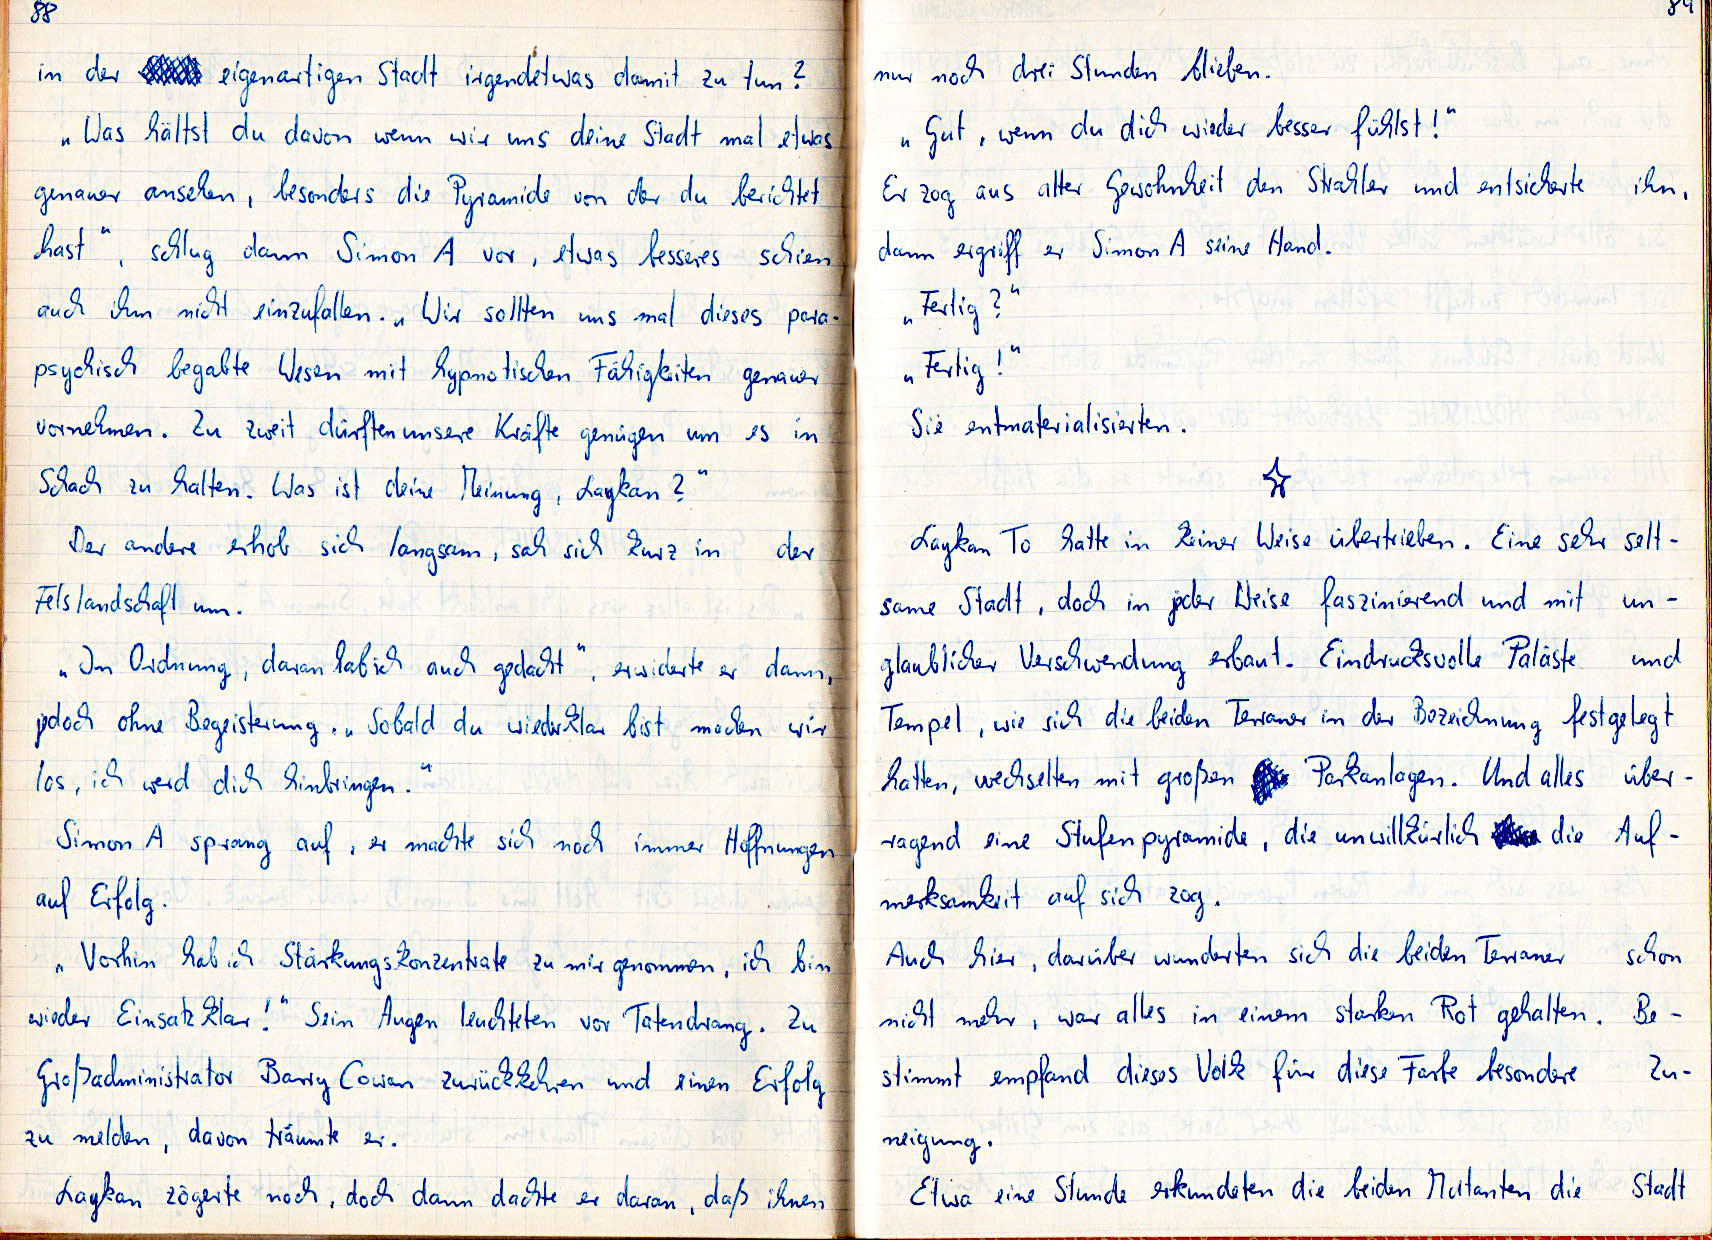 88
in der eigenartigen Stadt irgendetwas damit zu tun?
„Was hältst du davon wenn wir uns deine Stadt mal etwas
genauer ansehen, besonders die Pyramide von der du berichtet
hast", schlug dann Simon A vor, etwas besseres schien
auch ihm nicht einzufallen. „Wir sollten uns mal dieses para-
psychisch begabte Wesen mit hypnotischen Fähigkeiten genauer
vornehmen. Zu zweit dürften unsere Kräfte genügen um es in
Schach zu halten. Was ist deine Meinung, Laykan?"
Der andere erhob sich langsam, sah sich kurz in der
Felslandschaft um.
„In Ordnung, daran hab ich auch gedacht", erwiderte er dann,
jedoch ohne Begeisterung. „Sobald du wieder klar bist machen wir
los, ich werd dich hinbringen."
Simon A sprang auf, er machte sich noch immer Hoffnungen
auf Erfolg.
„Vorhin hab ich Stärkungskonzentrate zu mir genommen, ich bin
wieder Einsatzklar!" Sein Augen leuchteten vor Tatendrang. Zu
Großadministrator Barry Cowan zurückkehren und einen Erfolg
zu melden, davon träumte er.
Laykan zögerte noch, doch dann dachte er daran, daß ihnen
89
nur noch drei Stunden blieben.
„Gut, wenn du dich wieder besser fühlst!"
Er zog aus alter Gewohnheit den Strahler und entsicherte ihn,
dann ergriff er Simon A seine Hand.
„Fertig?"
„Fertig!"
Sie entmaterialisierten.
Laykan To hatte in keiner Weise übertrieben. Eine sehr selt-
same Stadt, doch in jeder Weise faszinierend und mit un-
glaublicher Verschwendung erbaut. Eindrucksvolle Paläste und
Tempel, wie sich die beiden Terraner in der Bezeichnung festgelegt
hatten, wechselten mit großen Parkanlagen. Und alles über-
ragend eine Stufenpyramide, die unwillkürlich die Auf-
merksamkeit auf sich zog.
Auch hier, darüber wunderten sich die beiden Terraner schon
nicht mehr, war alles in einem starken Rot gehalten. Be-
stimmt empfand dieses Volk für diese Farbe besondere Zu-
neigung.
Etwa eine Stunde erkundeten die beiden Mutanten die Stadt